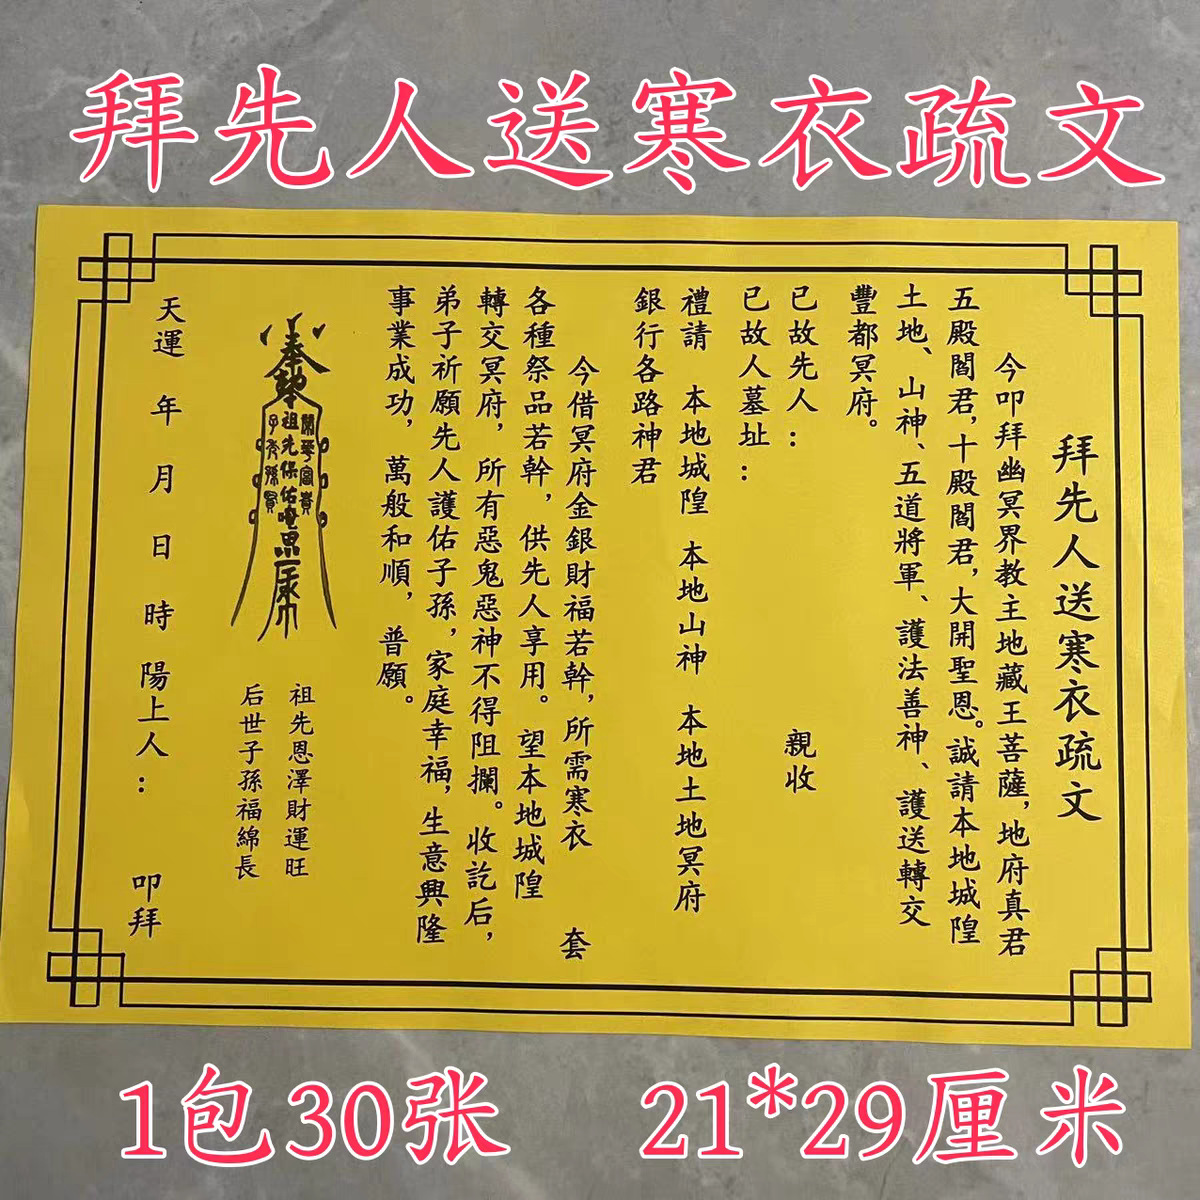 拜先人送寒衣疏文
拜先人送寒衣疏文
今叩拜幽冥界教主地藏王菩薩，地府真君
五殿閻君，十殿閻君，大開聖恩。誠請本地城隍
土地、山神、五道將軍、護法善神、護送轉交
豐都冥府。
已故先人： 親收
已故人墓址：
禮請 本地城隍 本地山神 本地土地冥府
銀行各路神君
今借冥府金銀財福若幹，所需寒衣 套
各種祭品若幹，供先人享用。望本地城隍
轉交冥府，所有惡鬼惡神不得阻攔。收訖后，
弟子祈願先人護佑子孫，家庭幸福，生意興隆
事業成功，萬般和順，普願。
榮華富貴
祖先保佑
子孝孫賢
祖先恩澤財運旺
后世子孫福綿長
天運 年 月 日 時 陽上人： 叩拜
1包30张 21*29厘米